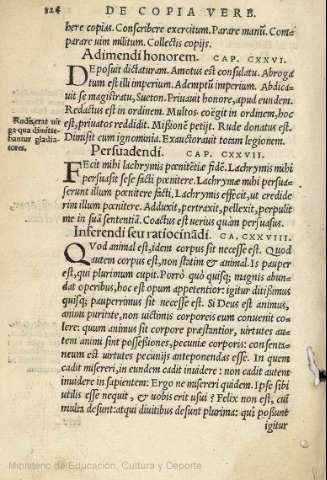 124 DE COPIA VERB.
bere copias. Conscribere exercitum. Parare manũ. Com=
parare uim militum. Collectis copijs.
Adimendi honorem. CAP. CXXVI.
DEposuit dictaturam. Amotus est consulatu. Abroga
tum est illi imperium. Ademptũ imperium. Abdica=
uit se magistratu, Sueton. Priuauit honore, apud eundem.
Redactus est in ordinem. Multos coëgit in ordinem, hoc
est, priuatos reddidit. Mißionẽ petijt. Rude donatus est.
Rudis erat uir
ga qua dimitte=
bantur gladia
tores.
Dimisit cum ignominia. Exauctorauit totam legionem.
Persuadendi. CAP. CXXVII.
FEcit mihi lachrymis pœnitẽtiæ fidẽ. Lachrymis mihi
persuasit sese facti pœnitere. Lachrymæ mihi persua=
serunt illum pœnitere facti. Lachrymis effecit, ut credide
rim illum pœnitere. Adduxit, pertraxit, pellexit, perpulit
me in suã sententiã. Coactus est uerius quàm persuasus.
Inferendi seu ratiocinãdi. CA. CXXVIII.
QVod animal est, idem corpus sit necesse est. Quod
autem corpus est, non statim & animal. Is pauper
est, qui plurimum cupit. Porrò quò quisq; magnis abun=
dat operibus, hoc est opum appetentior: igitur ditißimus
quisq; pauperrimus sit necesse est. Si Deus est animus,
animi puritate, non uictimis corporeis eum conuenit co=
lere: quum animus sit corpore præstantior, uirtutes au
tem animi sint possesiones, pecuniæ corporis: consenta=
neum est uirtutes pecunijs anteponendas esse. In quem
cadit misereri, in eundem cadit inuidere: non cadit autem
inuidere in sapientem: Ergo ne misereri quidem. Ipse sibi
utilis esse nequit, & uobis erit usui? Felix non est, cui
multa desunt: atqui diuitibus desunt plurima: qui poßunt
igitur
Ministerio de Educación, Cultura y Deporte